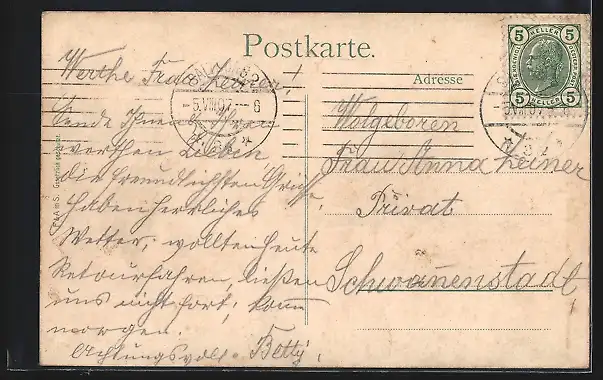 Postkarte.
Adresse
5 HELLER 5
5 HELLER 5
5.VIII.07 - 6
Werthe Frau Leiner,
Sende Ihnen, Ihren
werthen Lieben
die freundlichsten Grüße,
haben herrliches
Wetter, wollten heute
Retourfahren, ließen
uns nicht fort; komm
morgen.
Achtungsvoll Betty.
Wolgeboren
Frau Anna Leiner
Privat
Schwanenstadt